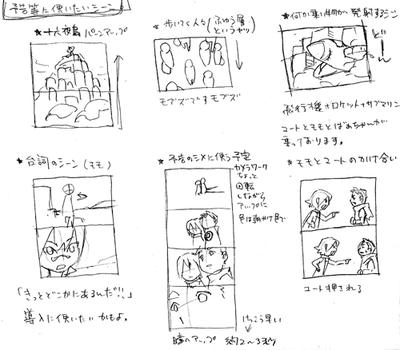 予告篇に使いたいシーン
★十人鵺 パーンアップ
★歩いてく人々(ふゆう層
というヤツ)
モブズですモブズ
★何か黒い物からか発射するシーン
どーん
飛行機+ロケット+サブマリン
コートとモモとばあちゃんが
乗っております。
★台詞のシーン(モモ)
「きっとどこかにあるんだ!!」
導入に使いたいかもよ。
★予告のシメに使う予定
カメラワーク
ちょっと
回転
しながら
アップに
瞳のアップ
けっこう早い
約2〜3秒
★モモとコートのかけ合い
コート押される